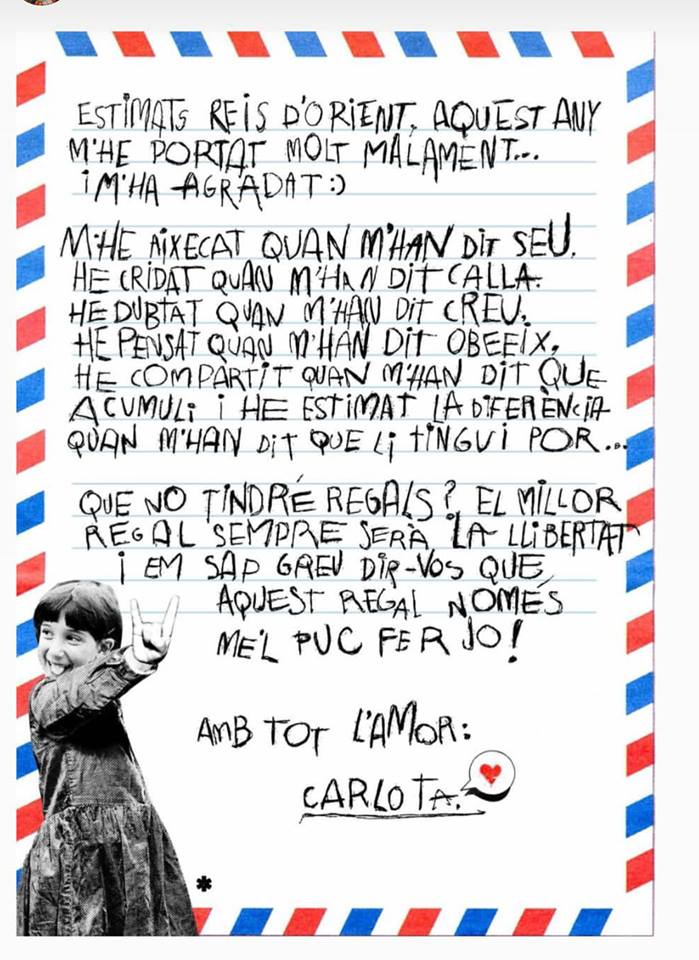 ESTIMATS REIS D'ORIENT, AQUEST ANY
M'HE PORTAT MOLT MALAMENT...
i M'HA AGRADAT :)
M'HE AIXECAT QUAN M'HAN DIT SEU.
HE CRIDAT QUAN M'HAN DIT CALLA.
HE DUBTAT QUAN M'HAN DIT CREU.
HE PENSAT QUAN M'HAN DIT OBEEIX,
HE COMPARTIT QUAN M'HAN DIT QUE
ACUMULI i HE ESTIMAT LA DIFERÈNCIA
QUAN M'HAN DIT QUE Li TINGUI POR...
QUE NO TINDRÉ REGALS? EL MILLOR
REGAL SEMPRE SERÀ LA LLIBERTAT
i EM SAP GREU DIR-VOS QUE
AQUEST REGAL NOMÉS
ME'L PUC FER JO!
AMB TOT L'AMOR:
CARLOTA.
*